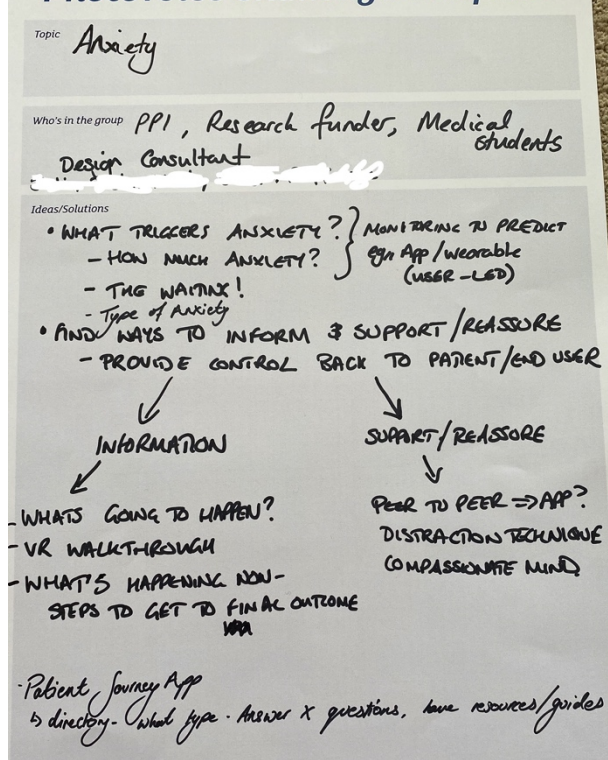 Topic Anxiety
Who's in the group PPI, Research funder, Medical students
Design Consultant
Ideas/Solutions
• WHAT TRIGGERS ANXIETY? } MONITORING TO PREDICT
– HOW MUCH ANXIETY? egn App/wearable
(USER-LED)
– THE WAITING!
- Type of Anxiety
• FIND WAYS TO INFORM & SUPPORT/REASSURE
– PROVIDE CONTROL BACK TO PATIENT/END USER
INFORMATION
SUPPORT/REASSORE
- WHATS GOING TO HAPPEN?
- VR WALKTHROUGH
- WHAT'S HAPPENING NOW-
STEPS TO GET TO FINAL OUTCOME
PEER TO PEER => APP?
DISTRACTION TECHNIQUE
COMPASSIONATE MIND
- Patient Journey App
↳ directory - what type. Answer X questions, have resources/guides